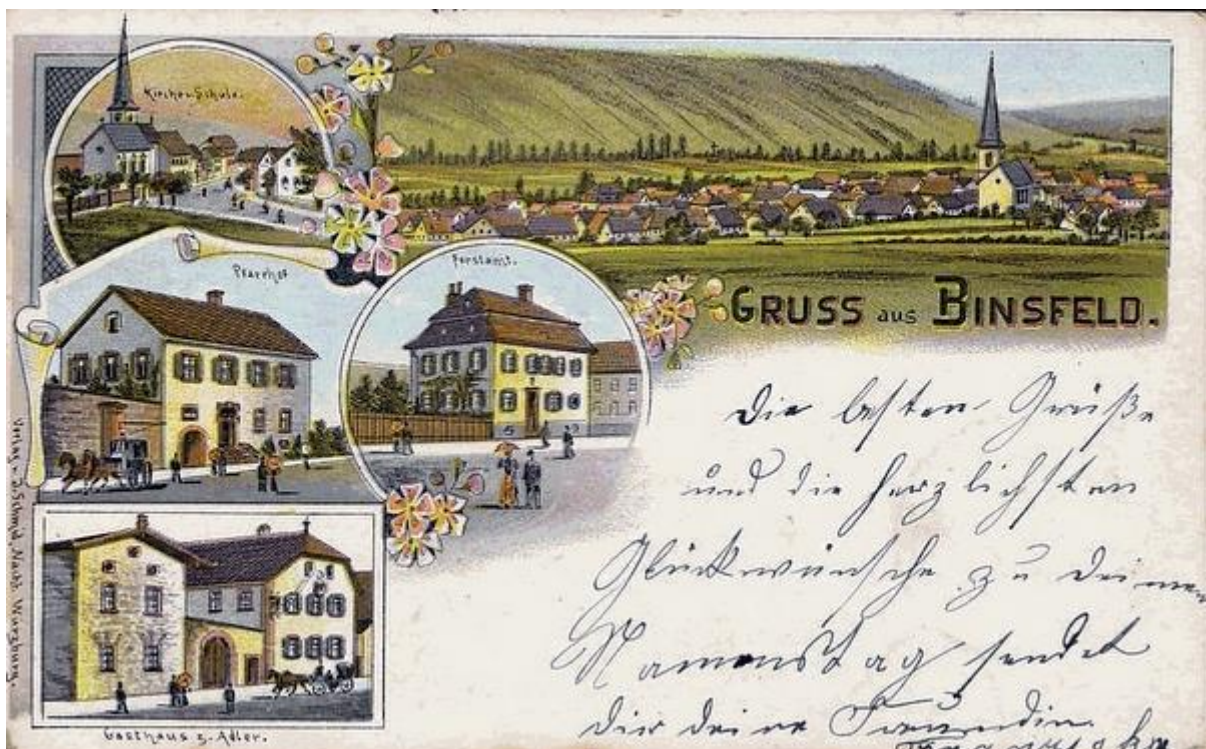 Kirche u. Schule.
Pfarrhof
Forstamt.
GRUSS aus BINSFELD.
Gasthaus z. Adler.
Verlag. Schmid Nachf. Würzburg.
Die besten Grüße
und die herzlichsten
Glückwünsche zu deinem
Namenstag sendet
dir deine Freundin